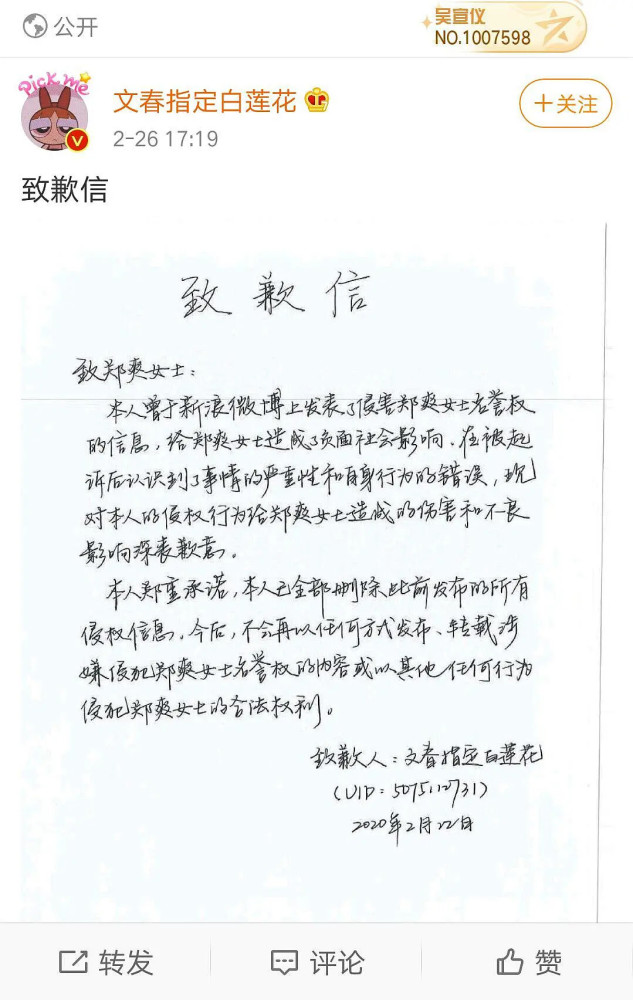 公开
吴宣仪
NO.1007598
Pick me
文春指定白莲花
+关注
2-26 17:19
致歉信
致歉信
致郑爽女士:
本人曾于新浪微博上发表了侵害郑爽女士名誉权
的信息,给郑爽女士造成了负面社会影响、在被起
诉后认识到了事情的严重性和自身行为的错误,现
对本人的侵权行为给郑爽女士造成的伤害和不良
影响深表歉意。
本人郑重承诺,本人已全部删除此前发布的所有
侵权信息,今后,不会再以任何方式发布、转载涉
嫌侵犯郑爽女士名誉权的内容或以其他任何行为
侵犯郑爽女士的合法权利。
致歉人:文春指定白莲花
(UID:5075112731)
2020年2月22日
转发
评论
赞